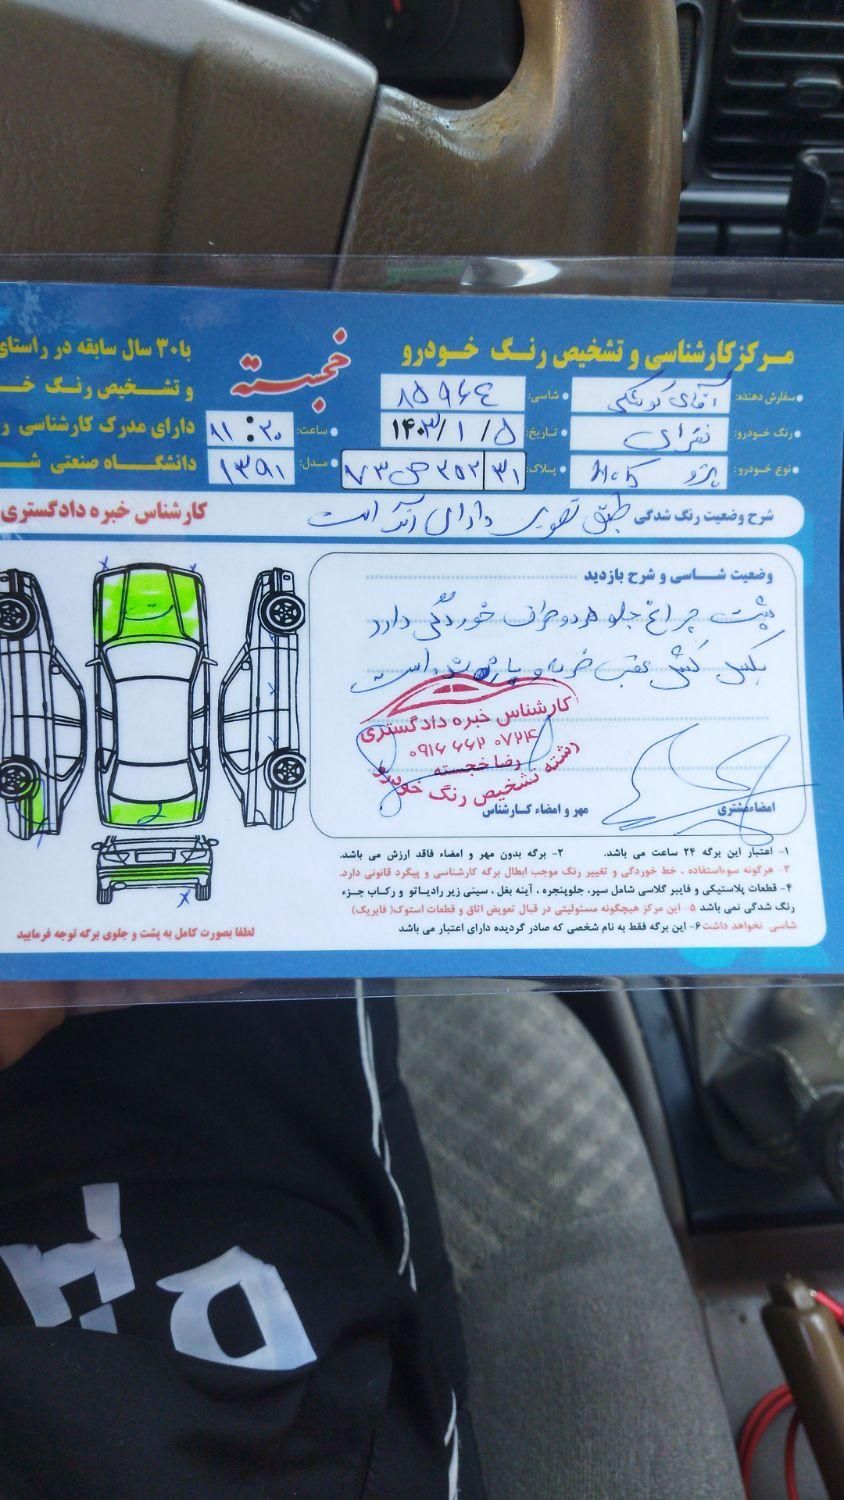 مرکز کارشناسی و تشخیص رنگ خودرو
خجسته
با ۳۰ سال سابقه در راستای
و تشخیص رنگ خـ
دارای مدرک کارشناسی ر
دانشگاه صنعتی شـ
سفارش دهنده: آقای
شاسی: ۸۵۹۶۴
رنگ خودرو: نقره‌ای
تاریخ: ۱۴۰۳/۱/۵
ساعت: ۱۱:۳۰
نوع خودرو: پژو ۴۰۵
پلاک: ۳۱ ۳۵۲ ص ۷۳
مدل: ۱۳۹۱
شرح وضعیت رنگ شدگی طبق تصویر دارای رنگ است
کارشناس خبره دادگستری
وضعیت شاسی و شرح بازدید
پشت چراغ جلو هر دو طرف خوردگی دارد
عقب ضربه و
کارشناس خبره دادگستری
۰۹۱۶ ۶۶۲ ۰۷۲۴
رضا خجسته
رشته تشخیص رنگ خودرو
مهر و امضاء کارشناس
امضاء مشتری
۱- اعتبار این برگه ۲۴ ساعت می باشد. ۲- برگه بدون مهر و امضاء فاقد ارزش می باشد.
۳- هرگونه سوءاستفاده ، خط خوردگی و تغییر رنگ موجب ابطال برگه کارشناسی و پیگرد قانونی دارد.
۴- قطعات پلاستیکی و فایبر گلاسی شامل سپر، جلوپنجره ، آینه بغل ، سینی زیر رادیاتور و رکاب جزء
رنگ شدگی نمی باشد ۵- این مرکز هیچگونه مسئولیتی در قبال تعویض اتاق و قطعات استوک( فابریک)
شاسی نخواهد داشت ۶- این برگه فقط به نام شخصی که صادر گردیده دارای اعتبار می باشد
لطفا بصورت کامل به پشت و جلوی برگه توجه فرمایید